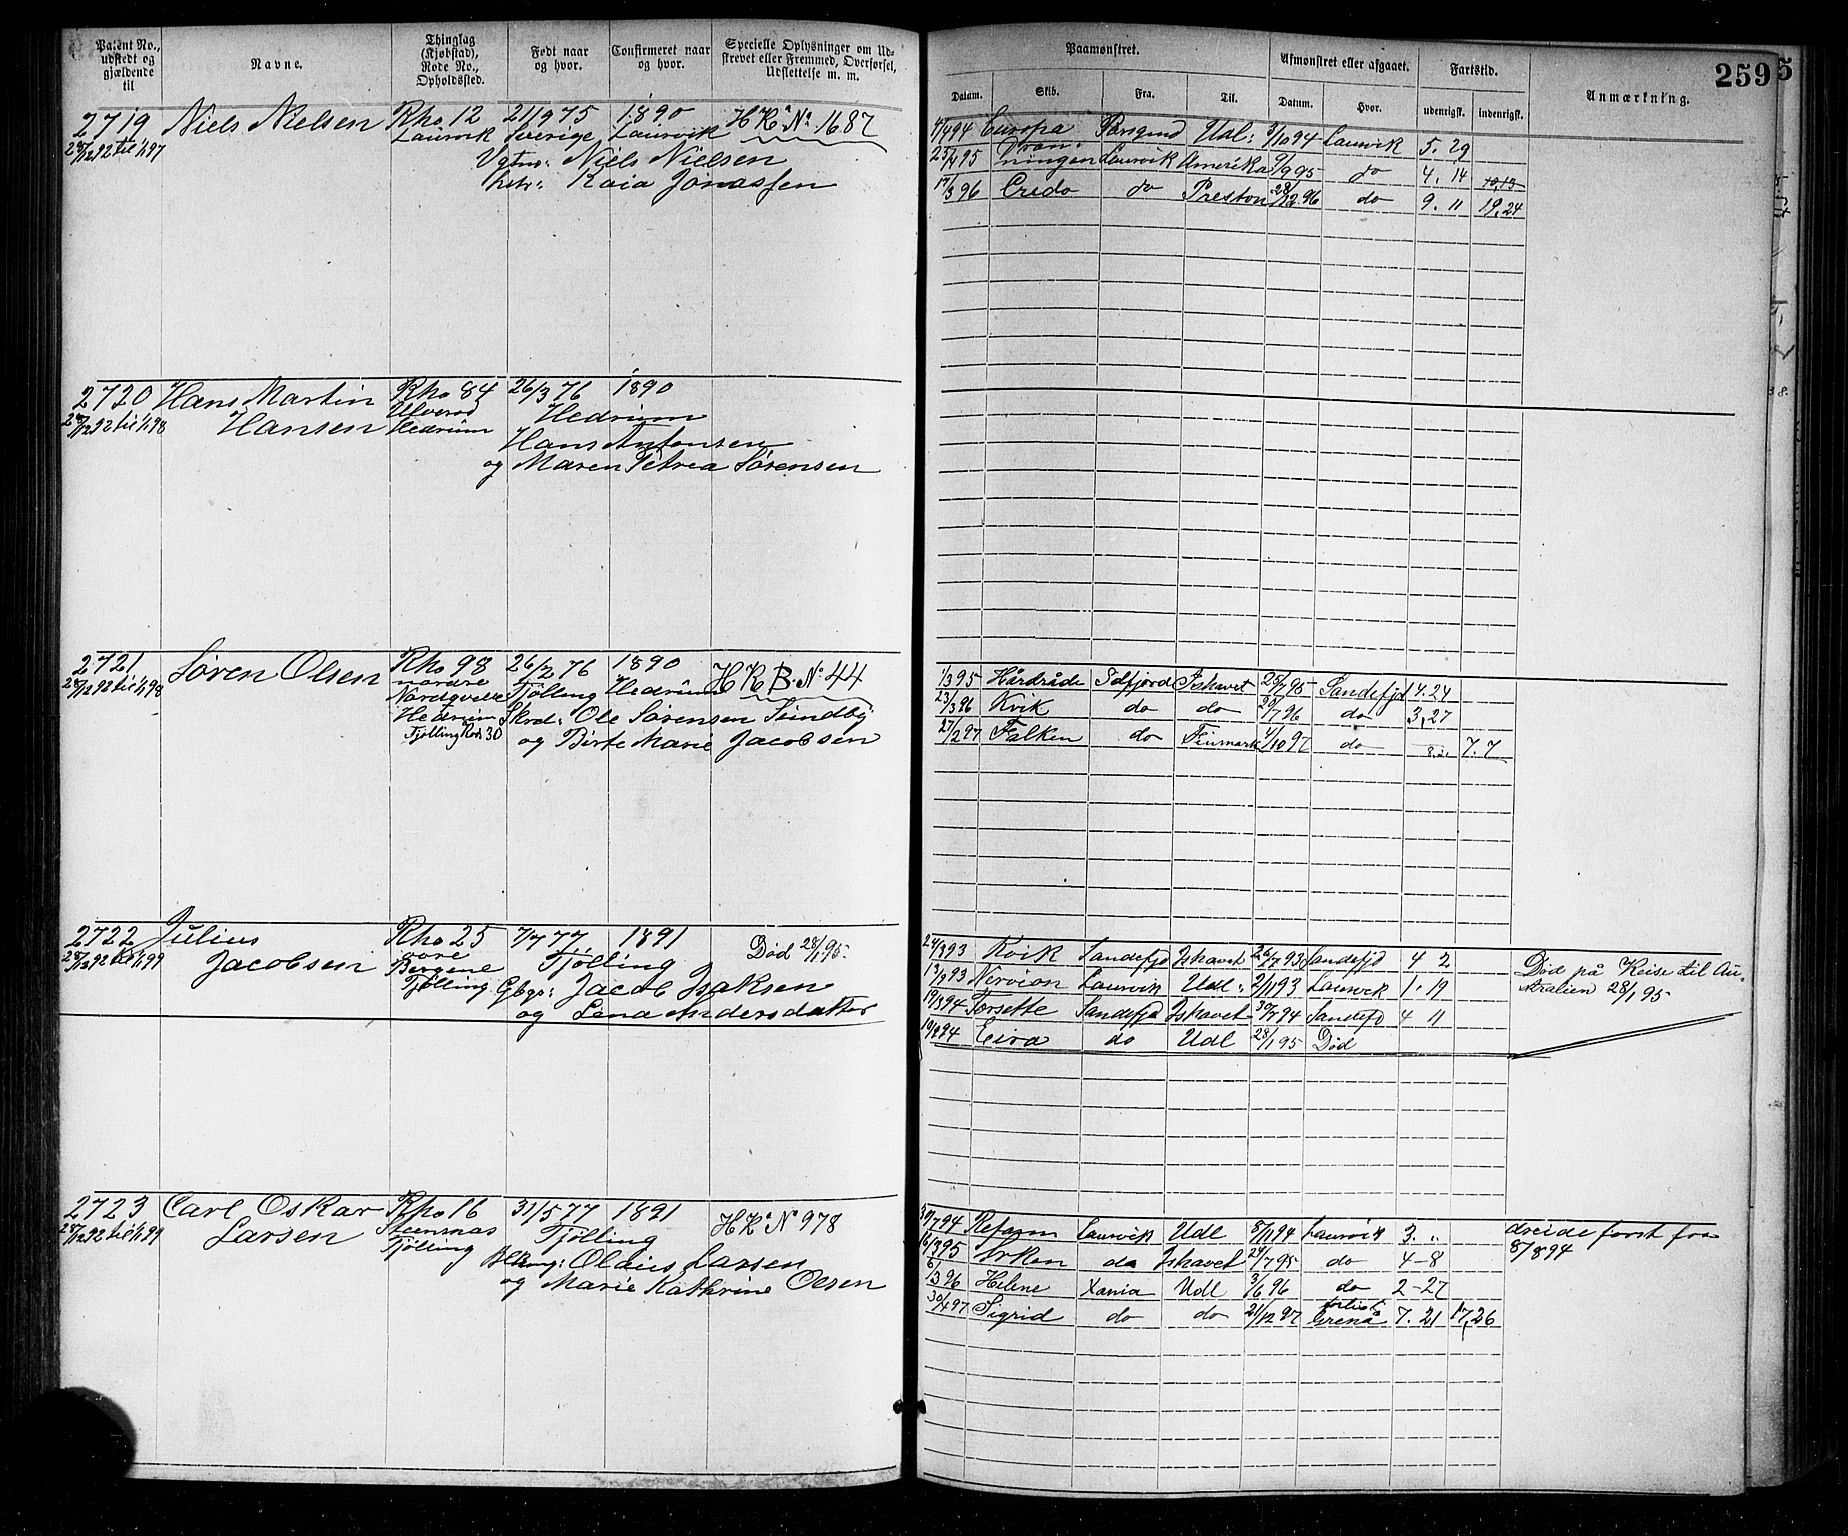 Patent No., udstedt og gjældende til
Navne.
Thinglag (Kjøbstad), Rode No., Opholdssted.
Født naar og hvor.
Confirmeret naar og hvor.
Specielle Oplysninger om Udskrevet eller Fremmed, Overførsel, Udslettelse m. m.
Paamønstret.
Afmønstret eller afgaaet.
Fartstid.
Anmærkning.
2595
Datum. Skib. Fra. Til. Datum. Hvor. udenrigsk. indenrigsk.
2719 Niels Nielsen Rho 12 21/9 75 1890 H Ka No 1687
28/12 92 til 1/1 97 Laurvik Sverige Laurvik
Niels Nielsen
Kaia Jonassen
4/4 94 Europa Porsgrund Udl: 3/10 94 Laurvik 5. 29
25/4 95 Dronningen Laurvik Amerika 9/9 95 do 4. 14 10,13
17/3 96 Credo do Preston 28/12 96 do 9. 11 19,24
2720 Hans Martin Rho 84 26/3 76 1890
28/12 92 til 1/1 98 Hansen Hedrum Hedrum
Hans Antonsen
og Maren Petrea Sørensen
2721 Søren Olsen Rho 98 26/2 76 1890 H K B. No 44
28/12 92 til 1/1 98 nordre Tjølling Hedrum
Hedrum Ole Sørensen Sundby
Tjølling Rod. 30 og Birte Marie Jacobsen
1/3 95 Hårdråde Sdfjord Ishavet 25/7 95 Sandefjd 4. 24
23/3 96 Kvik do do 30/7 96 do 3,27
27/2 97 Falken do Finmark 4/10 97 do 7. 7
2722 Julius Rho 25 7/7 77 1891 Død 28/1 95.
28/12 92 til 1/1 99 Jacobsen Bergene Tjølling
Tjølling Gbgs: Jacob Isaksen
og Lena Andersdatter
24/3 93 Kvik Sandefjd Ishavet 26/7 93 Sandefjd 4 2
13/9 93 Nervion Laurvik Udl: 2/11 93 Laurvik 1. 19
19/3 94 Forsette Sandefjd Ishavet 30/7 94 Sandefjd 4 11
19/9 94 Eira do Udl 28/1 95 Død
Død på Reise til Au-
stralien 28/1 95-
2723 Carl Oskar Rho 16 31/5 77 1891 H Ka No 978
28/12 92 til 1/1 99 Larsen Steensnas Tjølling
Tjølling Olaus Larsen
og Marie Kathrine Olsen
30/7 94 Reform Laurvik Udl 8/11 94 Laurvik 3. "
16/3 95 Ørken do Ishavet 24/7 95 do 4-8
6/3 96 Helene Xania Udl 3/6 96 do 2-27
30/4 97 Sigrid do do 21/12 97 forlist Grenå 7. 21 17,26
først fra
8/8 94